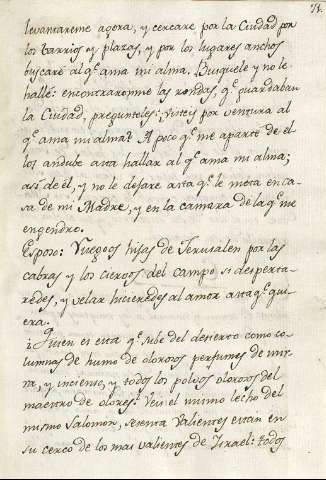 51.
levantareme agora, y cercare por la Ciudad por
los barrios y plazas, y por los lugares anchos
buscare al q.e ama mi alma. Busquele y no le
hallé: encontraronme las rondas, q.e guardaban
la Ciudad, preguntéles: visteis por ventura al
q.e ama mi alma? A poco q.e me aparté de el
los andube asta hallar al q.e ama mi alma;
asi de él, y no le dejare asta q.e le meta en ca-
sa de mi Madre, y en la camara de la q.e me
engendro.
Esposo: Ruegoos hijas de Jerusalen por las
cabras y los ciervos del campo si desperta-
redes, y velar hicieredes al amor asta q.e qui-
era.
¿Quien es esta q.e sube del desierto como co-
lumnas de humo de olorosos perfumes de mir-
ra, y incienso, y todos los polvos olorosos del
maestro de olores? Veis el mismo lecho del
mismo Salomón, sesenta valientes estan en
su cerco de los mas valientes de Israel: todos